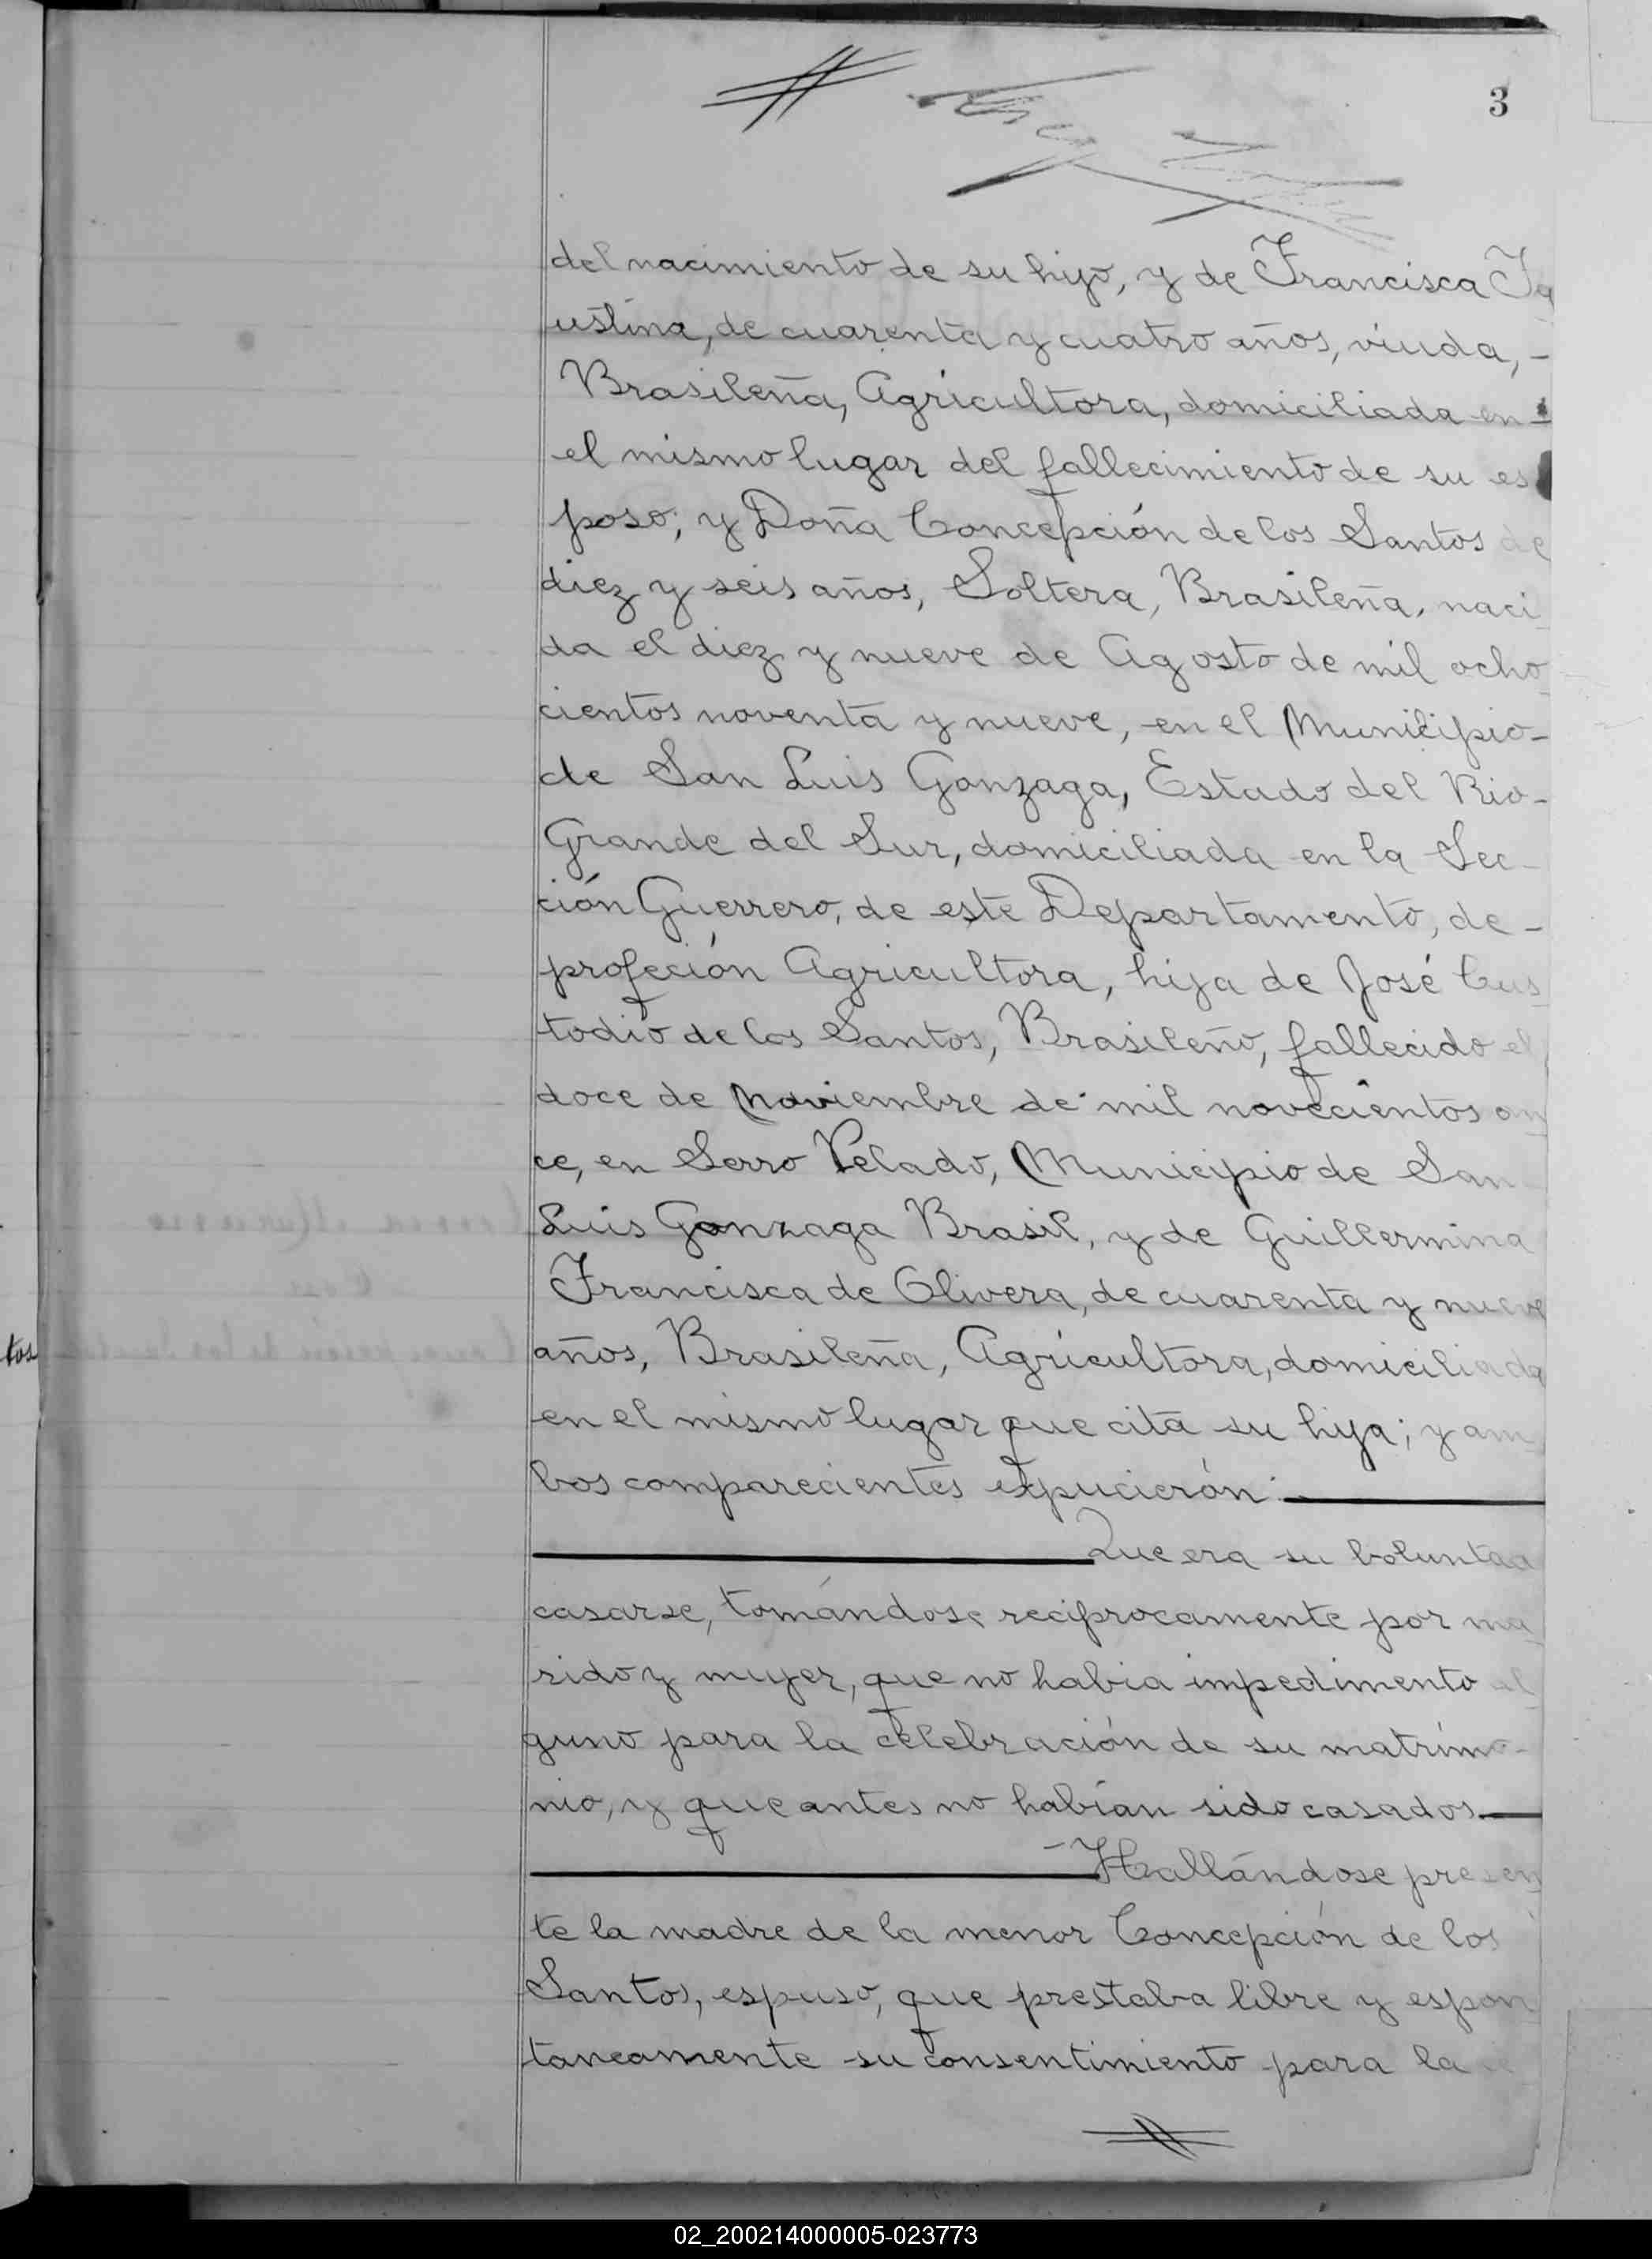 3
del nacimiento de su hijo, y de Francisca Fa
ustina, de cuarenta y cuatro años, viuda, -
Brasileña, Agricultora, domiciliada en
el mismo lugar del fallecimiento de su es
poso; y Doña Concepción de los Santos de
diez y seis años, Soltera, Brasileña, naci
da el diez y nueve de Agosto de mil ocho
cientos noventa y nueve, en el Municipio-
de San Luis Gonzaga, Estado del Rio-
Grande del Sur, domiciliada en la Sec-
ción Guerrero, de este Departamento, de-
profeción Agricultora, hija de José Cus
todio de los Santos, Brasileño, fallecido el
doce de Noviembre de mil novecientos on
ce, en Serro Pelado, Municipio de San
Luis Gonzaga Brasil, y de Guillermina
Francisca de Olivera, de cuarenta y nueve
años, Brasileña, Agricultora, domiciliada
tos
en el mismo lugar que cita su hija; y am
bos comparecientes expucierón:
Que era su boluntad
casarse, tomándose reciprocamente por ma
rido y mujer, que no habia impedimento al
guno para la celebración de su matrimo-
nio, y que antes no habían sido casados
Hallándose presen
te la madre de la menor Concepción de los
Santos, espuso, que prestaba libre y espon
taneamente su consentimiento para la
02_200214000005-023773